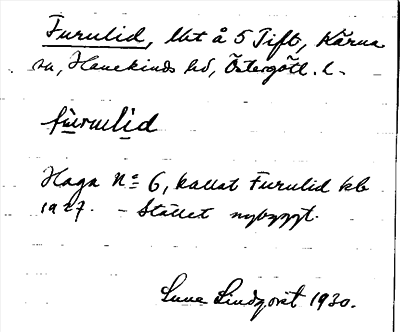 Furulid, lht å 5 Tift, Kärna
sn, Hanekinds hd, Östergötl. l.
fùrulìd
Haga No 6, kallat Furulid kb
1927. – Stället nybyggt.
Sune Lindqvist 1930.